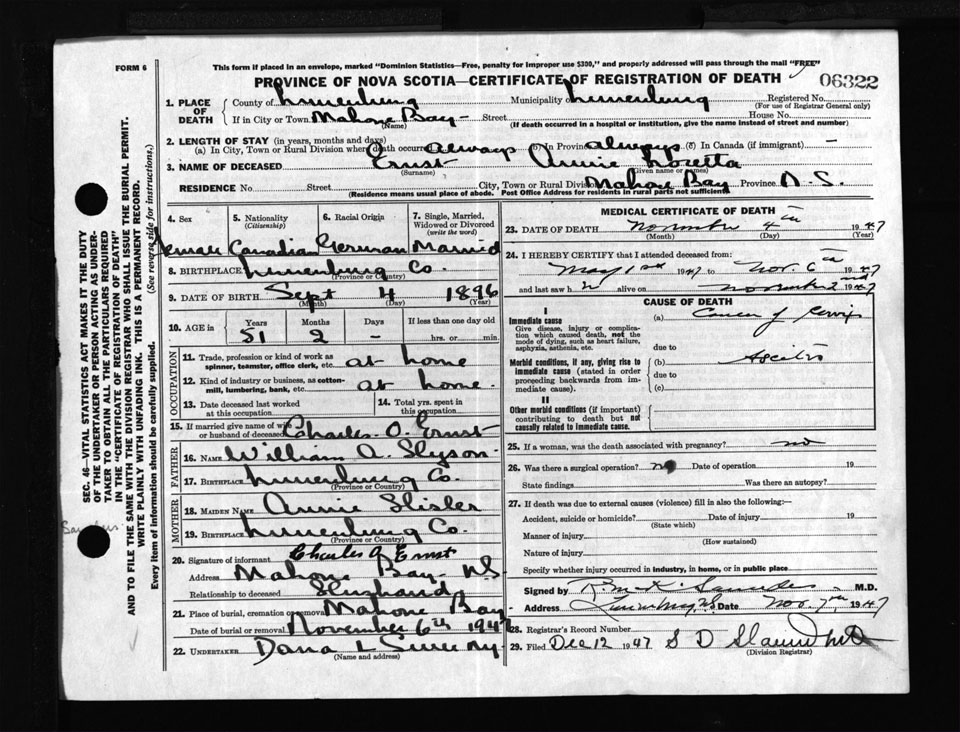 FORM 6
This form if placed in an envelope, marked "Dominion Statistics—Free, penalty for improper use $300," and properly addressed will pass through the mail "FREE"
PROVINCE OF NOVA SCOTIA—CERTIFICATE OF REGISTRATION OF DEATH
06322
1. PLACE OF DEATH
County of Lunenburg Municipality of Lunenburg Registered No.
(For use of Registrar General only)
If in City or Town Mahone Bay - Street House No.
(Name) (If death occurred in a hospital or institution, give the name instead of street and number)
2. LENGTH OF STAY (in years, months and days)
(a) In City, Town or Rural Division where death occurred always (b) In Province always (c) In Canada (if immigrant) —
3. NAME OF DECEASED Ernst Annie Loretta
(Surname) (Given name or names)
RESIDENCE No. Street City, Town or Rural Division Mahone Bay Province N.S.
(Residence means usual place of abode. Post Office Address for residents in rural parts not sufficient)
4. Sex
Female
5. Nationality
(Citizenship)
Canadian
6. Racial Origin
German
7. Single, Married, Widowed or Divorced
(write the word)
Married
8. BIRTHPLACE Lunenburg Co.
(Province or Country)
9. DATE OF BIRTH Sept 4 1896
(Month) (Day) (Year)
10. AGE in
Years Months Days If less than one day old
51 2 - hrs. or min.
OCCUPATION
11. Trade, profession or kind of work as spinner, teamster, office clerk, etc. at home
12. Kind of industry or business, as cotton-mill, lumbering, bank, etc. at home.
13. Date deceased last worked at this occupation
14. Total yrs. spent in this occupation
15. If married give name of wife or husband of deceased Charles O. Ernst
FATHER
16. NAME William A.
17. BIRTHPLACE Lunenburg Co.
(Province or Country)
MOTHER
18. MAIDEN NAME Annie
19. BIRTHPLACE Lunenburg Co.
(Province or Country)
20. Signature of informant Charles O Ernst
Address Mahone Bay N.S
Relationship to deceased Husband
21. Place of burial, cremation or removal Mahone Bay
Date of burial or removal November 6th 1947
22. UNDERTAKER Dana L
(Name and address)
MEDICAL CERTIFICATE OF DEATH
23. DATE OF DEATH November 4th 1947
(Month) (Day) (Year)
24. I HEREBY CERTIFY that I attended deceased from:
May 1st 1947 to Nov. 6th 1947
and last saw h alive on November 2nd 1947
CAUSE OF DEATH
I
Immediate cause
Give disease, injury or complication which caused death, not the mode of dying, such as heart failure, asphyxia, asthenia, etc.
(a) Cancer of Cervix
due to
Morbid conditions, if any, giving rise to immediate cause (stated in order proceeding backwards from immediate cause).
(b) Ascites
due to
(c)
II
Other morbid conditions (if important) contributing to death but not causally related to immediate cause.
25. If a woman, was the death associated with pregnancy? no
26. Was there a surgical operation? no Date of operation 19
State findings Was there an autopsy?
27. If death was due to external causes (violence) fill in also the following:—
Accident, suicide or homicide? Date of injury 19
(State which)
Manner of injury
(How sustained)
Nature of injury
Specify whether injury occurred in industry, in home, or in public place
Signed by Saunders M.D.
Address Lunenburg, N.S Date Nov. 7th, 1947
28. Registrar's Record Number
29. Filed Dec 12 1947 S D
(Division Registrar)
SEC. 46—VITAL STATISTICS ACT MAKES IT THE DUTY
OF THE UNDERTAKER OR PERSON ACTING AS UNDER-
TAKER TO OBTAIN ALL THE PARTICULARS REQUIRED
IN THE "CERTIFICATE OF REGISTRATION OF DEATH"
AND TO FILE THE SAME WITH THE DIVISION REGISTRAR WHO SHALL ISSUE THE BURIAL PERMIT.
WRITE PLAINLY WITH UNFADING INK. THIS IS A PERMANENT RECORD.
Every item of information should be carefully supplied. (See reverse side for instructions.)